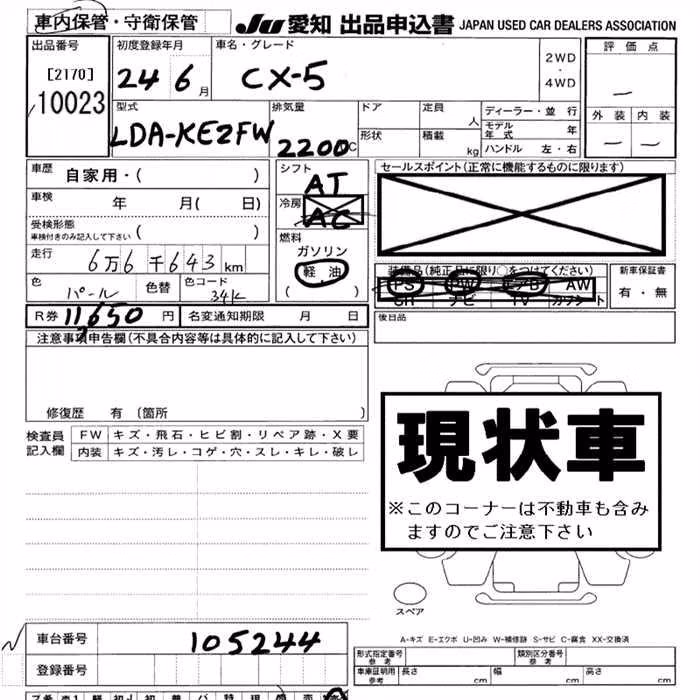 車内保管・守衛保管
JU 愛知 出品申込書 JAPAN USED CAR DEALERS ASSOCIATION
出品番号
[2170]
10023
初度登録年月
24 6月
車名・グレード
CX-5
2WD
・
4WD
評価点
—
外装 内装
— —
型式
LDA-KE2FW
排気量
2200C
ドア
形状
定員
人
積載
kg
ディーラー・並行
モデル年式 年
ハンドル 左・右
車歴 自家用・( )
車検 年 月( 日)
受検形態
車検付きのみ記入して下さい ( )
走行 6万6千643km
色 パール 色替 色コード 34K
シフト
AT
冷房
AC
燃料
ガソリン
軽油
( )
セールスポイント(正常に機能するものに限ります)
装備品(純正品に限り○をつけてください)
PS PW エアB AW
SR ナビ TV カワシート
新車保証書
有・無
R券 11650円 名変通知期限 月 日
後日品
注意事項申告欄(不具合内容等は具体的に記入して下さい)
修復歴 有 〔箇所 〕
検査員
記入欄
FW キズ・飛石・ヒビ割・リペア跡・X要
内装 キズ・汚レ・コゲ・穴・スレ・キレ・破レ
現状車
※このコーナーは不動車も含み
ますのでご注意下さい
スペア
A-キズ E-エクボ U-凹み W-補修跡 S-サビ C-腐食 XX-交換済
車台番号 105244
登録番号
形式指定番号
参考
類別区分番号
参考
車庫証明用
参考
長さ 幅 高さ
cm cm cm